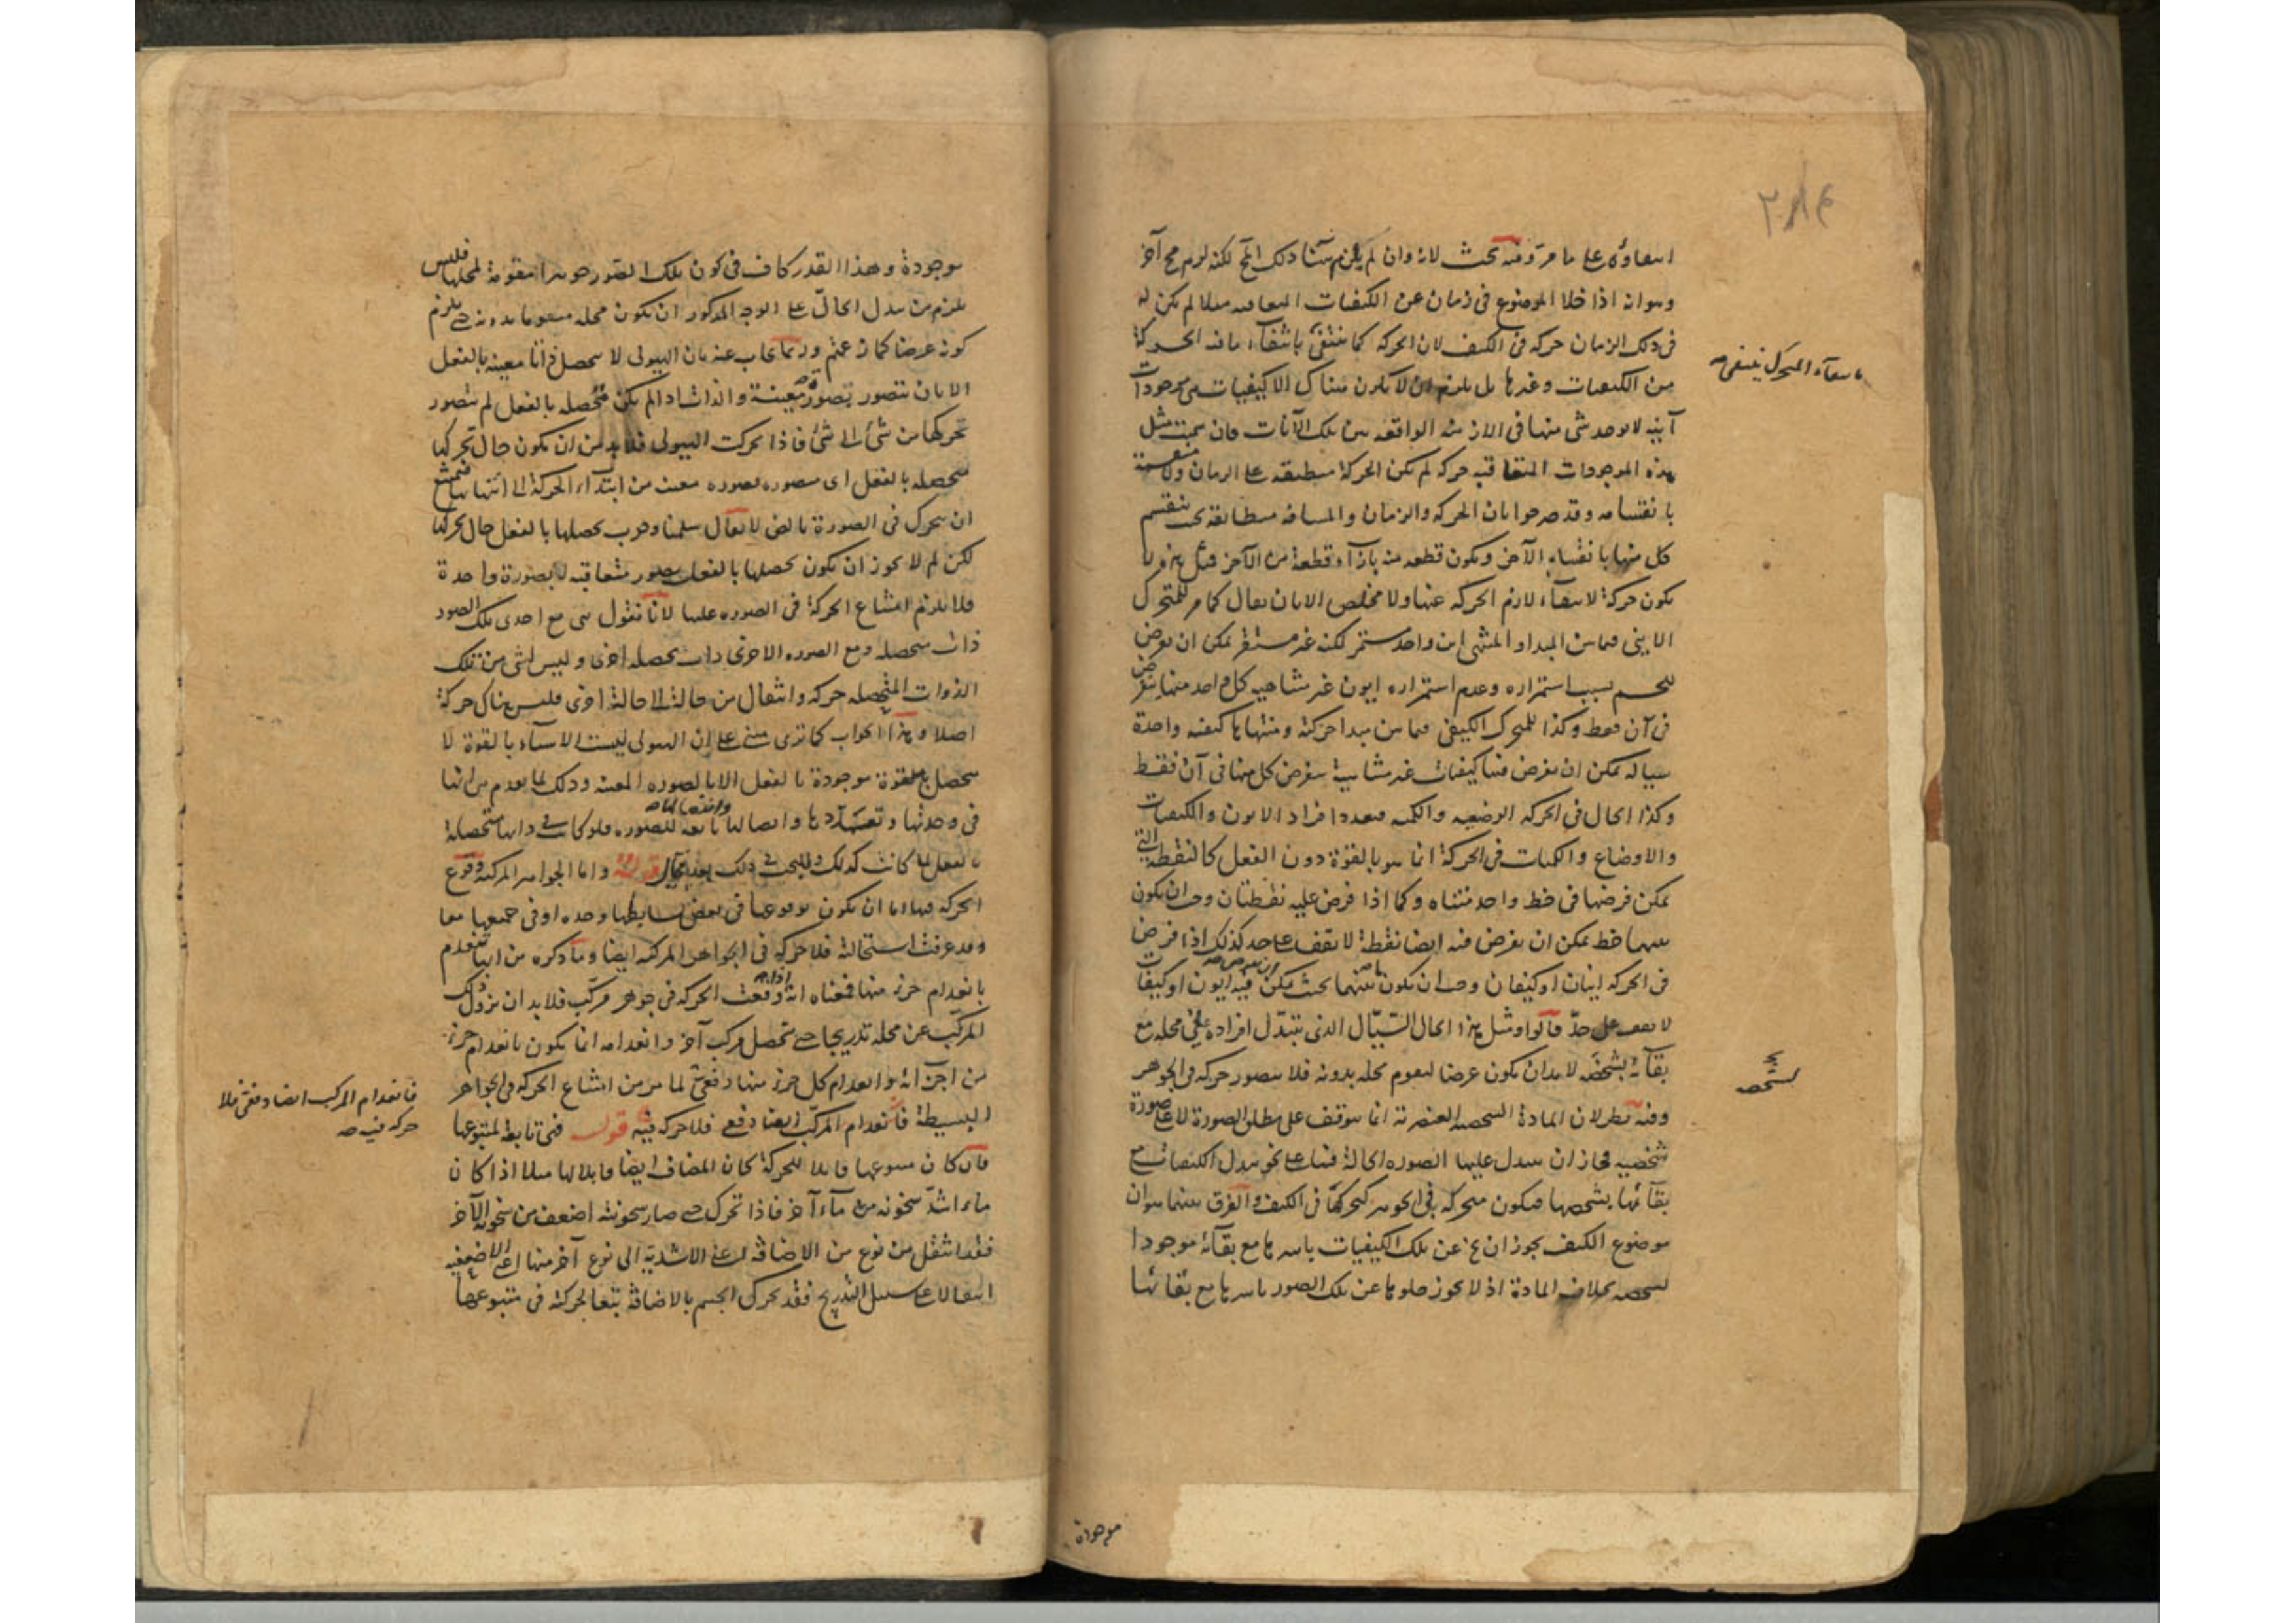 انتفاؤه على ما مر وفيه بحث لانه وان لم يلزم هنا ذلك المح لكنه لزم مح آخر
وهو انه اذا خلا الموضوع فى زمان عن الكيفيات المتعاقبه مثلا لم يكن له
فى ذلك الزمان حركه فى الكيف لان الحركه كما تنتفى بانتفاء ما فيه الحركة
من الكيفيات وغيرها بل يلزم ان لا يكون هناك الا كيفيات هى موجودات
آنيه لا يوجد شئ منها فى الازمنه الواقعه بين تلك الآنات فان سميت مثل
هذه الموجودات المتعاقبه حركه لم تكن الحركة منطبقه على الزمان ولا منقسمة
بانقسامه وقد صرحوا بان الحركه والزمان والمسافه متطابقه بحيث ينقسم
كل منها بانقسام الآخر ويكون قطعه منه بازاء قطعة من الآخر فمثل هذه لا
يكون حركة لانتفاء لازم الحركه عنها ولا مخلص الا بان يقال كما مر للمتحرك
الاينى فيما بين المبدا والمنتهى اين واحد مستمر لكنه غير مستقر يمكن ان يفرض
للجسم بسبب استمراره وعدم استمراره ايون غير متناهيه كل واحد منها يفرض
فى آن فقط وكذا للمتحرك الكيفى فيما بين مبدا حركته ومنتهاها كيفيه واحدة
سياله يمكن ان يفرض فيها كيفيات غير متناهية يفرض كل منها فى آن فقط
وكذا الحال فى الحركه الوضعيه والكميه فتعدد افراد الايون والكيفيات
والاوضاع والكميات فى الحركة انما هو بالقوة دون الفعل كالنقطة التى
يمكن فرضها فى خط واحد متناه وكما اذا فرض عليه نقطتان وجب ان يكون
بينهما خط يمكن ان يفرض فيه ايضا نقطة لا يقف على حد كذلك اذا فرض
فى الحركه اينان او كيفيتان وجب ان يكون ما بينهما بحيث يمكن ان يفرض فيه ايون او كيفيات
لا يقف على حدّ قالوا ومثل هذا الحال السّيّال الذى يتبدّل افراده على محله مع
بقائه بشخصه لا بد ان يكون عرضا ليقوم محله بدونه فلا يتصور حركه فى الجوهر
وفيه نظر لان المادة الشخصيه العنصرية انما يتوقف على مطلق الصورة لا على صورة
شخصيه فجاز ان يتبدل عليها الصوره الحالة فيها على نحو تبدل الكيفيات مع
بقائها بشخصها فيكون متحركه فى الجوهر كتحركها فى الكيف والفرق بينهما هو ان
موضوع الكيف يجوز ان يخ عن تلك الكيفيات باسرها مع بقائه موجودا
بشخصه بخلاف المادة اذ لا يجوز خلوها عن تلك الصور باسرها مع بقائها
بانتفاء المتحرك ينتفى صح
بشخصه
موجودة
موجودة وهذا القدر كاف فى كون تلك الصور جوهرا مقومة لمحلها فليس
يلزم من تبدل الحالّ على الوجه المذكور ان يكون محله متقوما بدونه حتى يلزم
كونه عرضا كما زعمتم وربما يجاب عنه بان الهيولى لا يتحصل ذاتا معينه بالفعل
الا بان تتصور بصورة معينة والذات ما لم تكن متحصله بالفعل لم يتصور
تحركها من شئ الى شئ فاذا تحركت الهيولى فلا بد من ان يكون حال تحركها
متحصله بالفعل اى متصوره بصوره معينه من ابتداء الحركة الى انتهائها فيمتنع
ان يتحرك فى الصورة بالض لا يقال سلمنا وجوب تحصلها بالفعل حال تحركها
لكن لم لا يجوز ان يكون تحصلها بالفعل بصور متعاقبه لا بصورة واحدة
فلا يلزم امتناع الحركة فى الصوره عليها لانا نقول هى مع احدى تلك الصور
ذات متحصله ومع الصوره الاخرى ذات متحصله اخرى وليس لشئ من تلك
الذوات المتحصله حركه وانتقال من حالة الى حالة اخرى فليس هناك حركة
اصلا وهذا الجواب كما ترى مبنى على ان الهيولى ليست الا شيئا بالقوة لا
يتحصل بالقوة موجودة بالفعل الا بالصوره المعينه وذلك لما تقدم من انها
فى وحدتها وتعددها واتصالها وانفصالها تابعة للصوره فلو كانت فى ذاتها متحصلة
بالفعل لما كانت كذلك وللبحث فى ذلك بعد مجال قوله واما الجواهر المركبة فوقوع
الحركه فيها اما ان يكون بوقوعها فى بعض بسايطها وحده او فى جميعها معا
وقد عرفت استحالته فلا حركه فى الجواهر المركبه ايضا وما ذكره من انها تنعدم
بانعدام جزء منها فمعناه انه اذا وقعت الحركه فى جوهر مركّب فلا بد ان يزول ذلك
المركّب عن محله تدريجا حتى يتحصل مركب آخر وانعدامه انما يكون بانعدام جزء
من اجزائه وانعدام كل جزء منها دفعى لما مر من امتناع الحركه فى الجواهر
البسيطة فانعدام المركّب ايضا دفعى فلا حركه فيه قوله فهى تابعة لمتبوعها
فان كان متبوعها قابلا للحركة كان المضاف ايضا قابلا لها مثلا اذا كان
ماء اشدّ سخونه من ماء آخر فاذا تحرك حتى صار سخونته اضعف من سخونة الآخر
فقد انتقل من نوع من الاضافه اعنى الاشديّة الى نوع آخر منها اعنى الاضعفيه
انتقالا على سبيل التدريج فقد تحرك الجسم بالاضافة تبعا لحركته فى متبوعها
فانعدام المركب ايضا دفعى فلا
حركه فيه صح